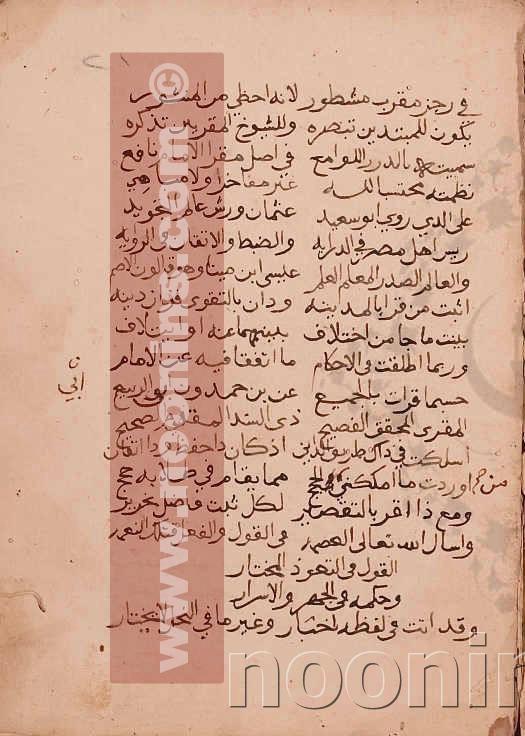 في رجز مقرب مشطور لانه احظى من المنثور
يكون للمبتدين تبصره وللشيوخ المقريين تذكره
سميته بالدرر اللوامع في اصل مقرا الامام نافع
نظمته محتسبا لله غير مفاخر ولا مباهي
على الذي روى ابو سعيد عثمان ورش عالم التجويد
رييس اهل مصر في الدرايه والضبط والاتقان في الروايه
والعالم الصدر المعلم العلم عيسى ابن مينا وهو قالون الاصم
اثبت من قرا بالمدينه ودان بالتقوى فزان دينه
بينت ما جا من اختلاف بينهما عنه او ايتلاف
وربما اطلقت في الاحكام ما اتفقا فيه عن الامام
حسبما قرات بالجميع عن بن حمدون ابي الربيع
ابي
المقرى المحقق الفصيح ذي السند المقدم الصحيح
اسلكت في ذاك طريق الداني اذ كان ذا حفظ وذا اتقان
من حج اوردت ما امكنني الحجج مما يقام في طلابه حجج
ومع ذا اقر بالتقصير لكل ثبت فاضل نحرير
واسال الله تعالى العصمه في القول والفعل فتلك النعمه
القول في التعوذ المختار
وحكمه في الجهر والاسرار
وقد اتت في لفظه اخبار وغير ما في النحل لا يختار
© www.noonins.com
noonin